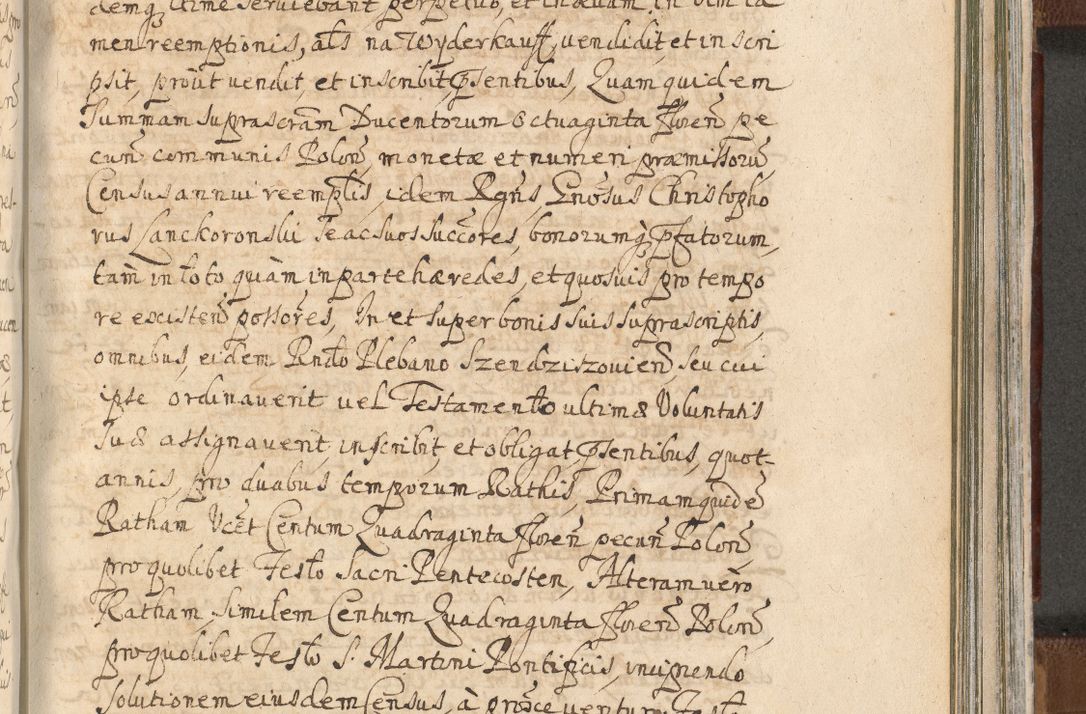 demq ultime serviebant perpetuo, et in ævum in vim ta
men reemptionis, als na Wyderkauff, vendidit, et in scri
psit, prout vendit, et inscribit, pśentibus, Quam quidem
Summam suprascrām Ducentorum Octuaginta floreñ pe
cuñ communis Poloñ, monetæ et numeri præmissorū
Census annui reemptlis, idem Rgñs, Gnōsus Christopho
rus Lanckoronskii se ac suos succōres, bonorumq, pfatorum,
tam in toto quàm in parte hæredes, et quosvis pro tempo
re existeñ possōres, In et super bonis suis suprascriptis,
omnibus, eidem Rndo Plebano Szendziszovieñ, seu cui
ipse ordinaverit vel Testamento ultimæ Voluntatis
suæ assignaverit, inscribit, et obligat, pśentibus, quot
annis, pro duabus temporum Rathis, Primam quidē
Ratham Vcēt Centum Quadraginta floreñ pecuñ Poloñ,
pro quolibet Festo Sacri Pentecosten, Alteram vero
Ratham, Similem Centum Quadraginta floreñ Poloñ,
pro quolibet Festo S. Martini Pontificis, incipiendo
solutionem eiusdem Census, à proxce venturm Fest